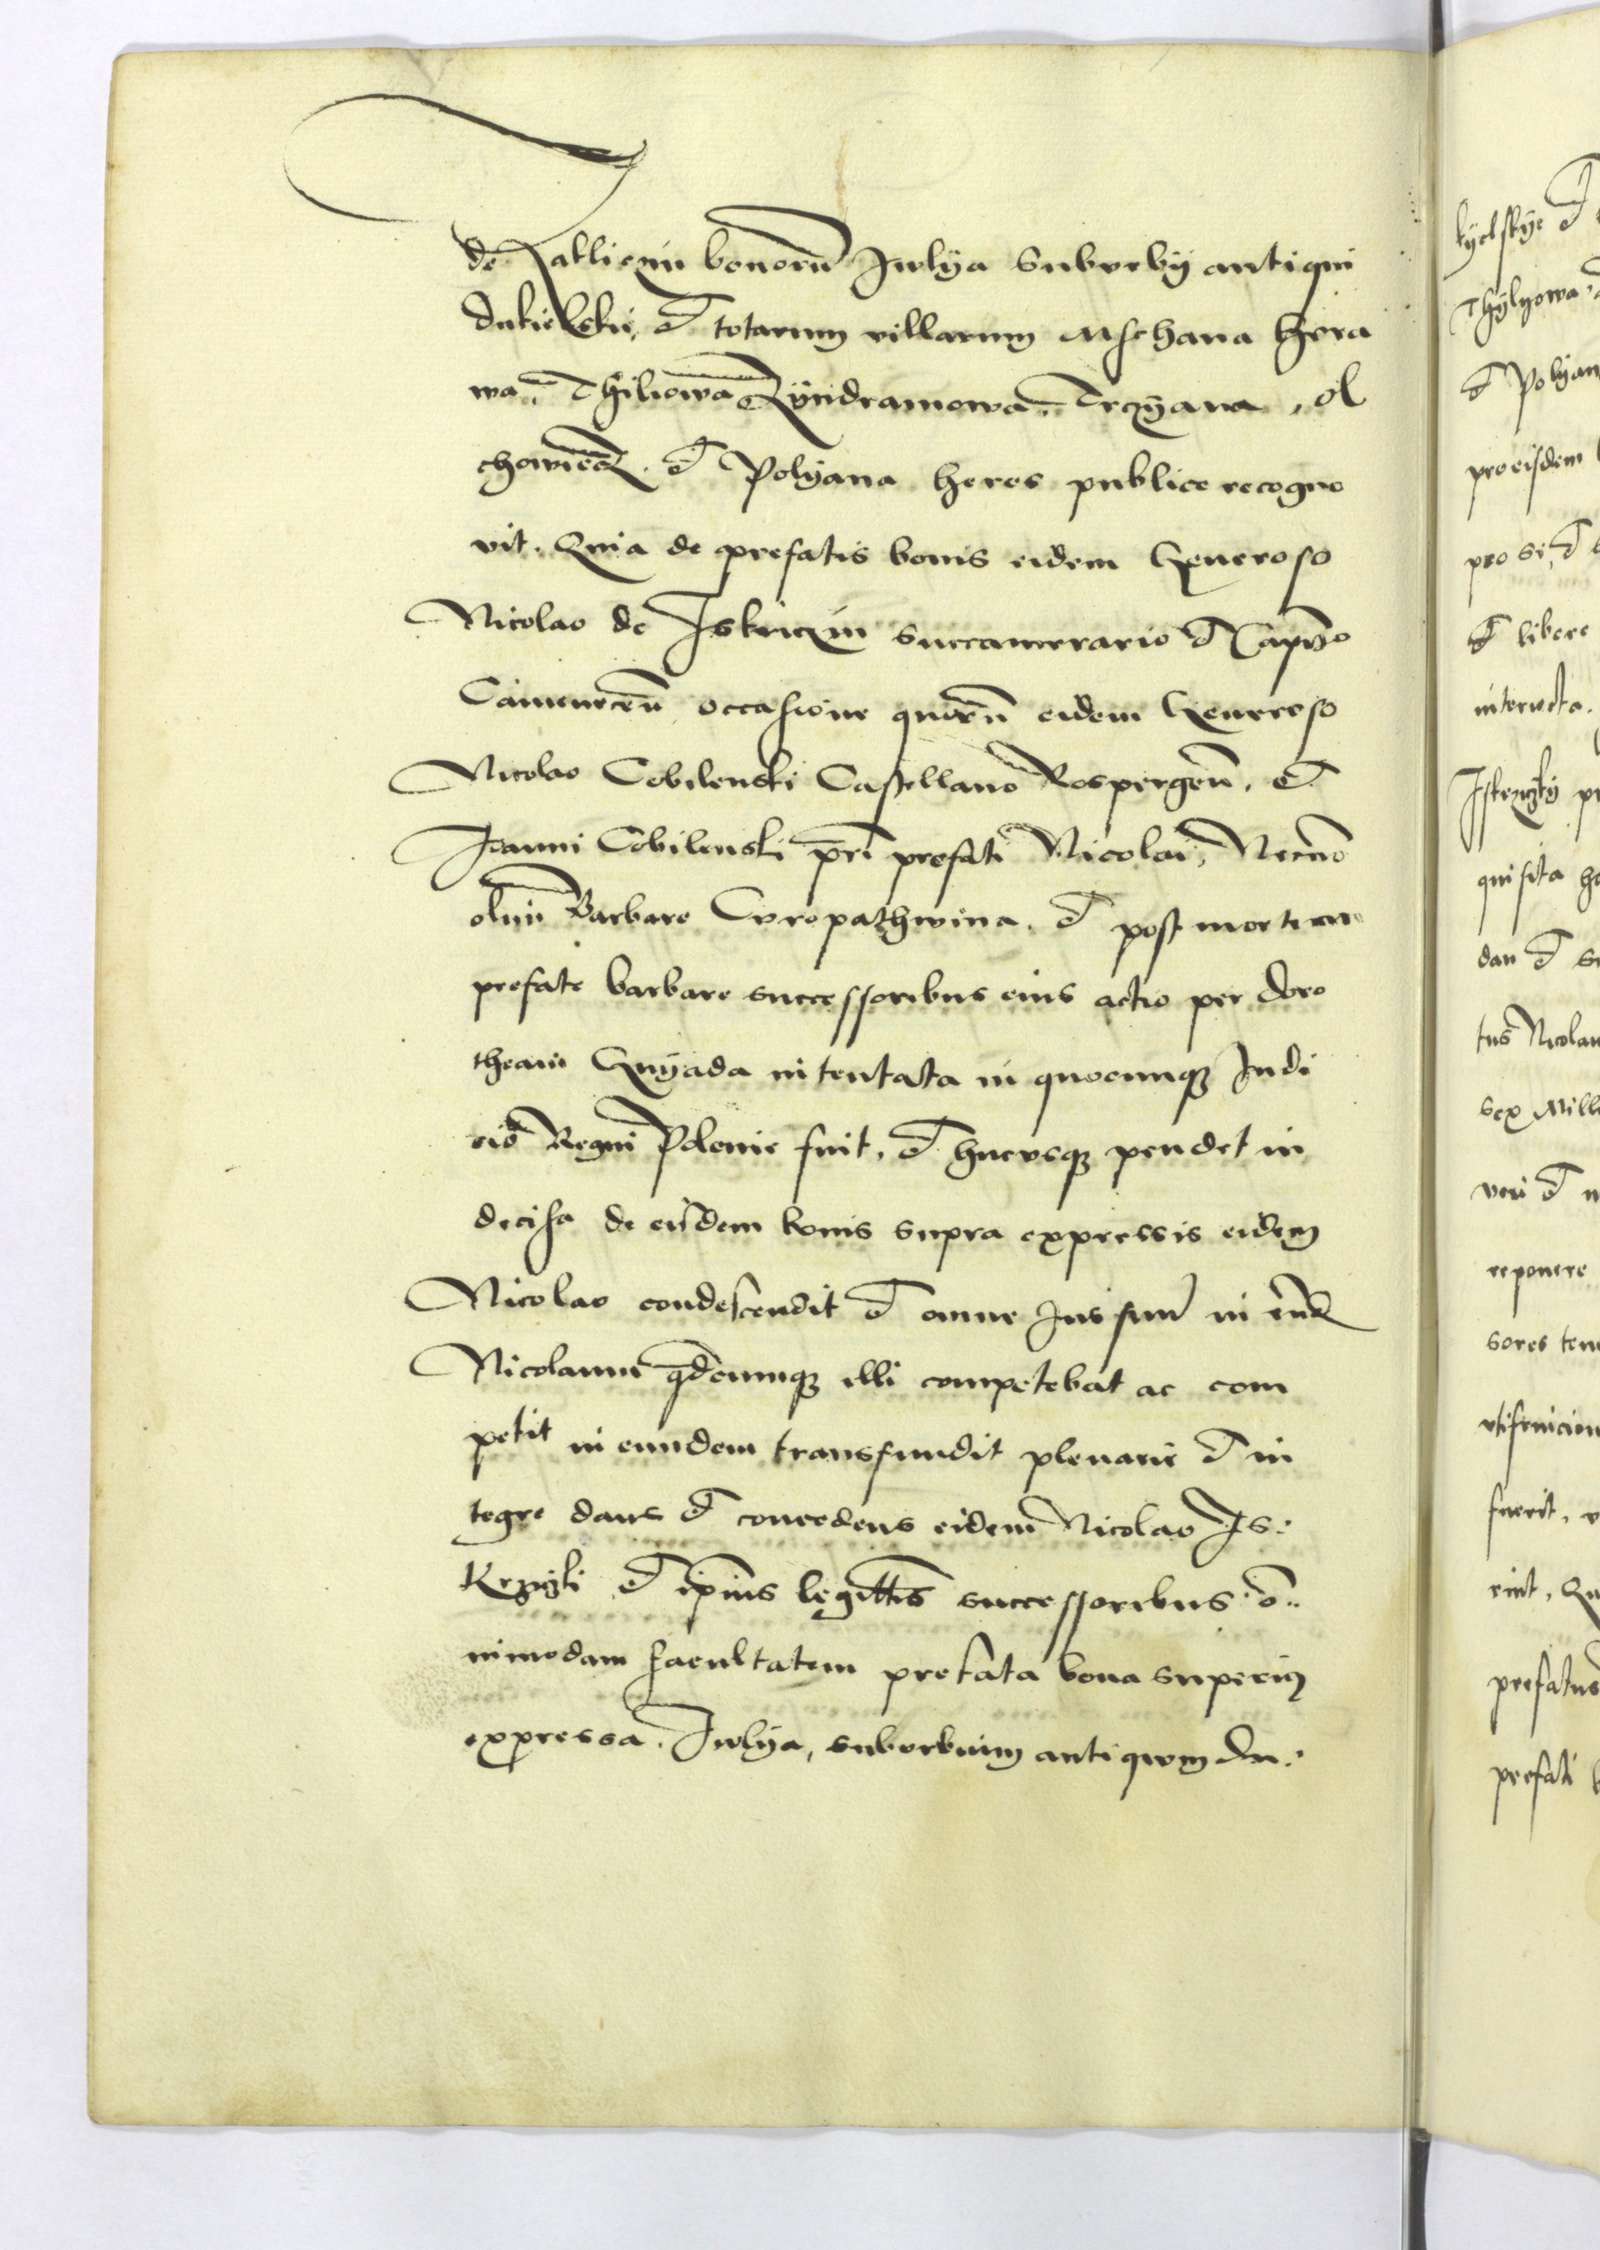 de Jassionu bonorū Jwlya Suburby antiqui
dukielskii, et totarum villarum Mschana Hyra
wa, Thiliowa Zyndramowa Trczyana, ol
chowiecz. et Polyana heres publice recogno
vit. Quia de prefatis bonis eidem Generoso
Nicolao de Iskriczin succamerario et Capneo
Camenecen̄ occasione quorū eidem Generoso
Nicolao Cobilenski Castellano Rospergen̄. et
Joanni Cobilenski pri prefati Nicolai, Necno
olim Barbare Curopathwina. et post mortem
prefate barbare successoribus eius actio per doro
theam Gnyada intentata in quocumq; Judi
cio Regni Polonie fuit, et hucusq; pendet in
decisa de eisdem bonis supra expressis eidem
Nicolao condescendit et omne Jus suum in eund
Nicolaum qdcumq; illi competebat ac com
petit in eundem transfundit plenarie et in
tegre dans et concedens eidem Nicolao Is:
Krzyczki et ipius legittis successoribus o:
nimodam facultatem prefata bona superius
expressa. Jwlya, suburbium antiquum du:
kyelskye et
Thylyowa
et Polyan
pro eisdem
pro se, et
et libere
interuecta.
Iskrzyczky pr
quisita ha
dan et su
tus Nicolau
sex Mille
veri et
reponere
sores ten
vtifruicion
fuerit, v
rint, Qu
prefatus
prefati b